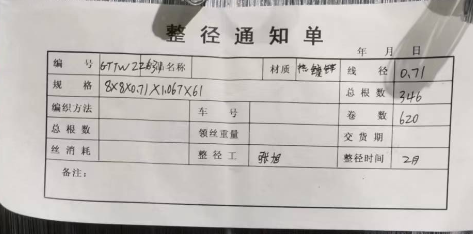 整径通知单
年 月 日
编 号 GTTW22631 名称 材质 热镀锌 线 径 0.71
规 格 8X8X0.71X1.067X61 总根数 346
编织方法 车 号 卷 数 620
总根数 领丝重量 交货期
丝消耗 整径工 张旭 整径时间 2月
备注：